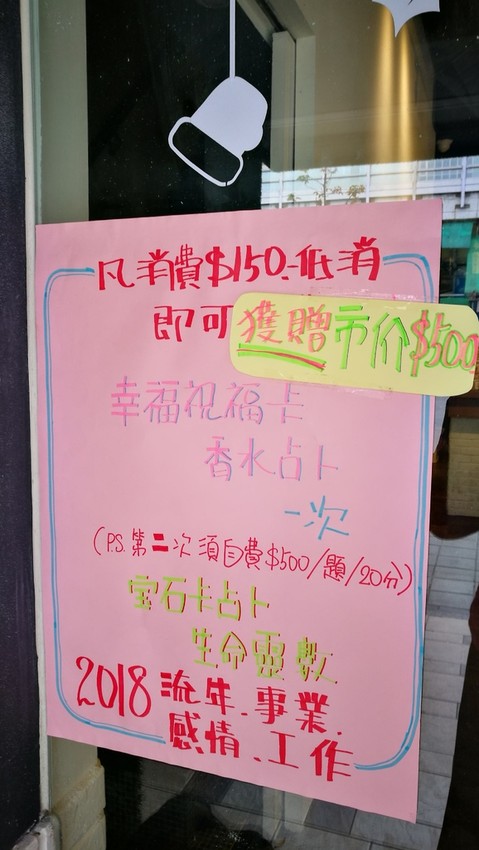 凡消費$150.-低消
即可獲贈市价$500
幸福祝福卡
香水占卜
一次
(P.S.第二次須自費$500/題/20分)
宝石卡占卜
生命靈數
2018流年、事業、
感情、工作